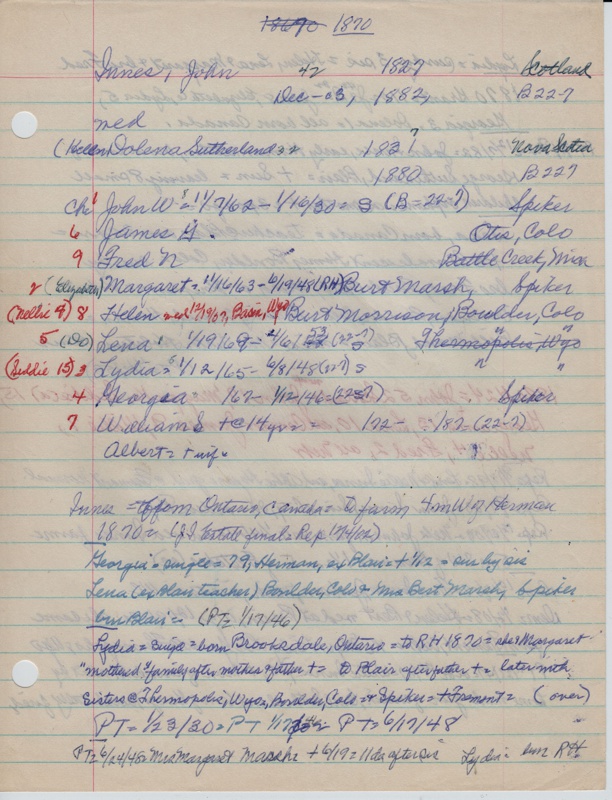 1870 1870
Innes, John 42 1827 Scotland
Dec-03, 1882, B22-7
med
(Helen) Dolena Sutherland 32 183? Nova Scotia
1880 B227
Ch 1 John W = 1/7/62 - 1/16/30 = S (B=22-7) Spiker
6 James H. Otis, Colo
9 Fred N Battle Creek, Mich
2 (Elizabeth) Margaret = 11/16/63 - 6/19/48 (RH) Burt Marsh, Spiker
(Nellie 9) 8 Helen = med 12/19/07, Basin, Wyo Burt Morrison, Boulder, Colo
5 (Do) Lena 1/19/69 - 2/6/53 (22-7) Thermopolis, Wyo
(Liddie 15) 3 Lydia = 1/12/65 - 6/8/48 (227) S " "
4 Georgia = /67 - 1/12/46 = (22-7) Spiker
7 William S +@ 14 yrs = /72 - /87 (22-7)
Albert = + inf. "
Innes = from Ontario, Canada = to farm 4 m W of Herman
1870 = (JI Estate final = Rep
Georgia = single = 79, Herman, ex Blair = + 1/12 = sur by sis
Lena (ex Blair teacher) Boulder, Colo & Mrs Burt Marsh, Spiker
bur Blair = (PT = 1/17/46)
Lydia = single = born Brooksdale, Ontario = to RH 1870 = she & Margaret
"mothered" family after mother & father + = to Blair after father + = later with
Sisters @ Thermopolis, Wyo, Boulder, Colo = + Spiker = + Fremont = (over)
PT = 1/23/30 = PT 1/17/46 = PT = 6/17/48 "
PT = 6/24/48 = Mrs Margaret Marsh = + 6/19 = 11 da after sis Lydia = bur RH